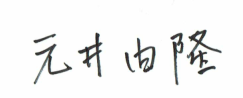 元井由隆